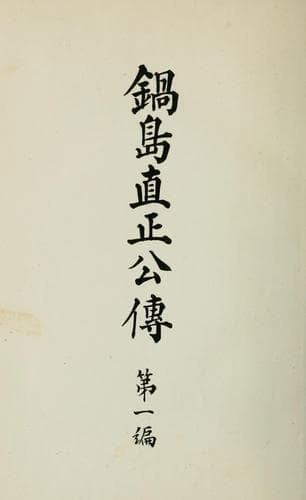 鍋島直正公傳
第一編